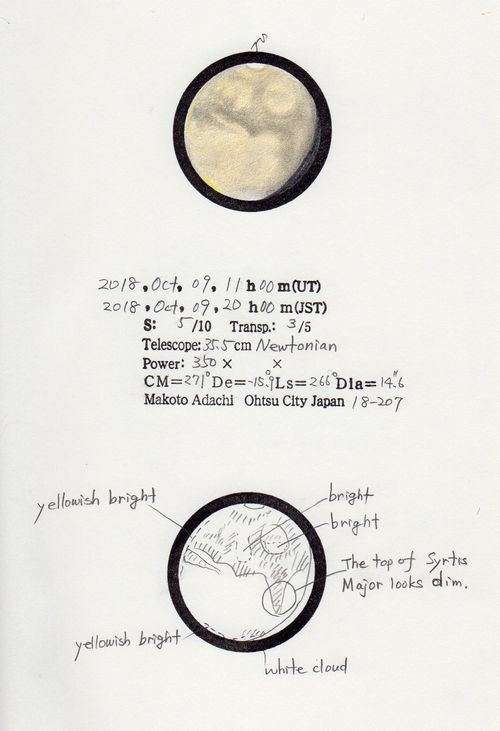 2018, Oct, 09, 11 h 00 m (UT)
2018, Oct, 09, 20 h 00 m (JST)
S: 5/10 Transp.: 3/5
Telescope: 35.5 cm Newtonian
Power: 350 × ×
CM=271° De=-15.9° Ls=266° Dia=14.″6
Makoto Adachi Ohtsu City Japan 18-207
yellowish bright
bright
bright
The top of Syrtis
Major looks dim.
yellowish bright
white cloud